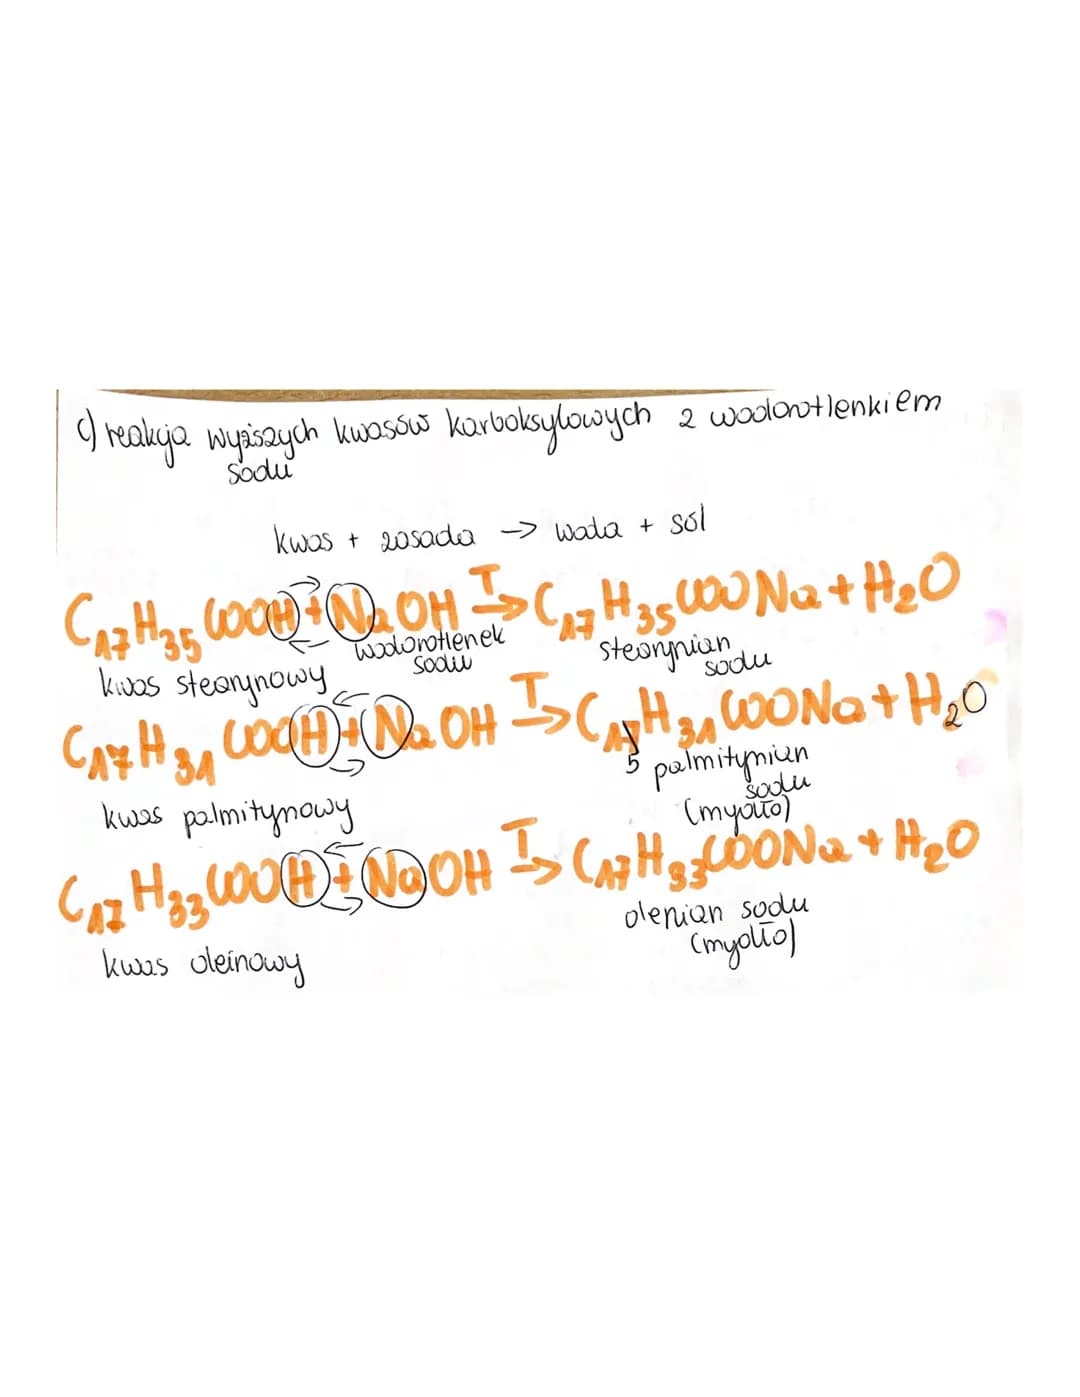 c) reakcja wyższych kwasów karboksylowych z wodorotlenkiem
sodu
kwas + zasada -> woda + sól
C₁₇H₃₅COOH + NaOH T-> C₁₇H₃₅COONa + H₂O
kwas stearynowy wodorotlenek sodu stearynian sodu
C₁₇H₃₁COOH + NaOH T-> C₁₅H₃₁COONa + H₂O
kwas palmitynowy palmitynian sodu
(mydło)
C₁₇H₃₃COOH + NaOH T-> C₁₇H₃₃COONa + H₂O
kwas oleinowy olenian sodu
(mydło)